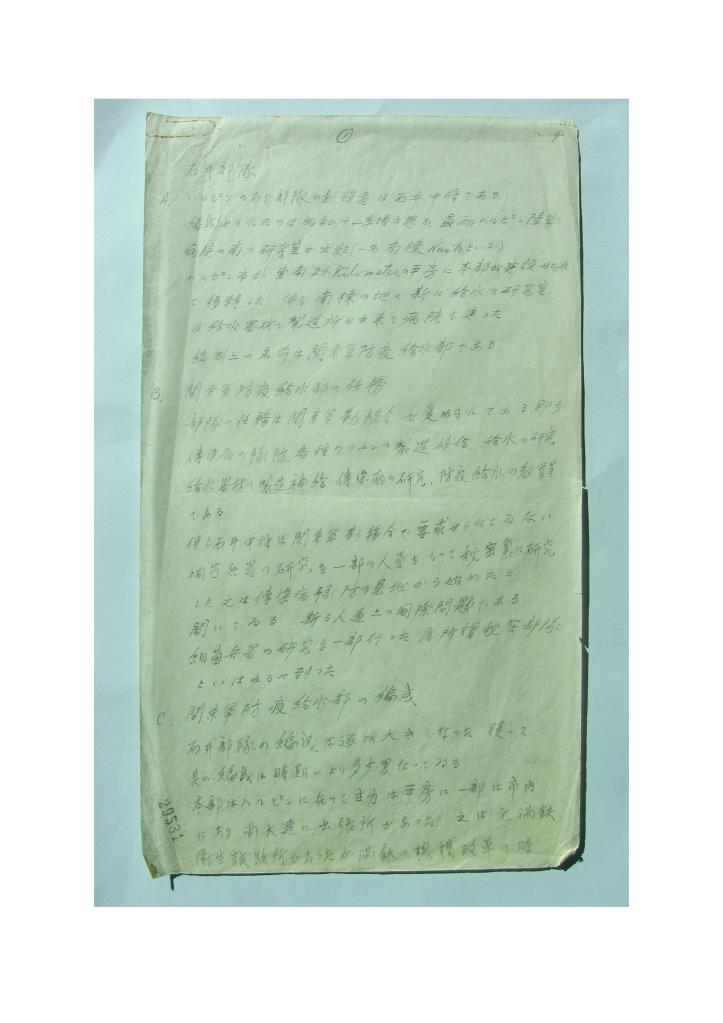 ① 1
石井部隊
A. ハルピンの石井部隊の創設者は石井中将である
編成せられたのは昭和十一年頃と思ふ、最初ハルピン陸軍
病院の南に研究室が出来(一名南棟 といふ)
ハルピン市が 南24 Kilometerの平房に本部が建設せられ
て移転した 併し南棟の地に新に給水の研究室
及給水器材の製造所が出来て病院も建った
編制上の名前は関東軍防疫給水部である
B. 関東軍防疫給水部の任務
部隊の任務は関東軍勤務令で定められてある即ち
傳染病の予防、各種ワクチンの製造補給、給水の研究
給水器材の製造補給、傳染病の研究、防疫給水の教育
である
併し石井中将は関東軍勤務令で要求せられてゐない
細菌兵器の研究を一部の人員をもって秘密裏に研究
した 之は傳染病予防の見地から始めたと
聞いてゐる 斯る人道上の国際問題である
細菌兵器の研究を一部行った為所謂秘密部隊
といはれるに到った
C. 関東軍防疫給水部の編成
石井部隊の編成は逐次大きくなった 従って
其の編成は時期により多少異なってゐる
本部はハルピンに在って主力は平房に一部は市内
にあり 尚大連に出張所があった 之は元満鉄
衛生試験所であったが満鉄の機構改革の時
29531